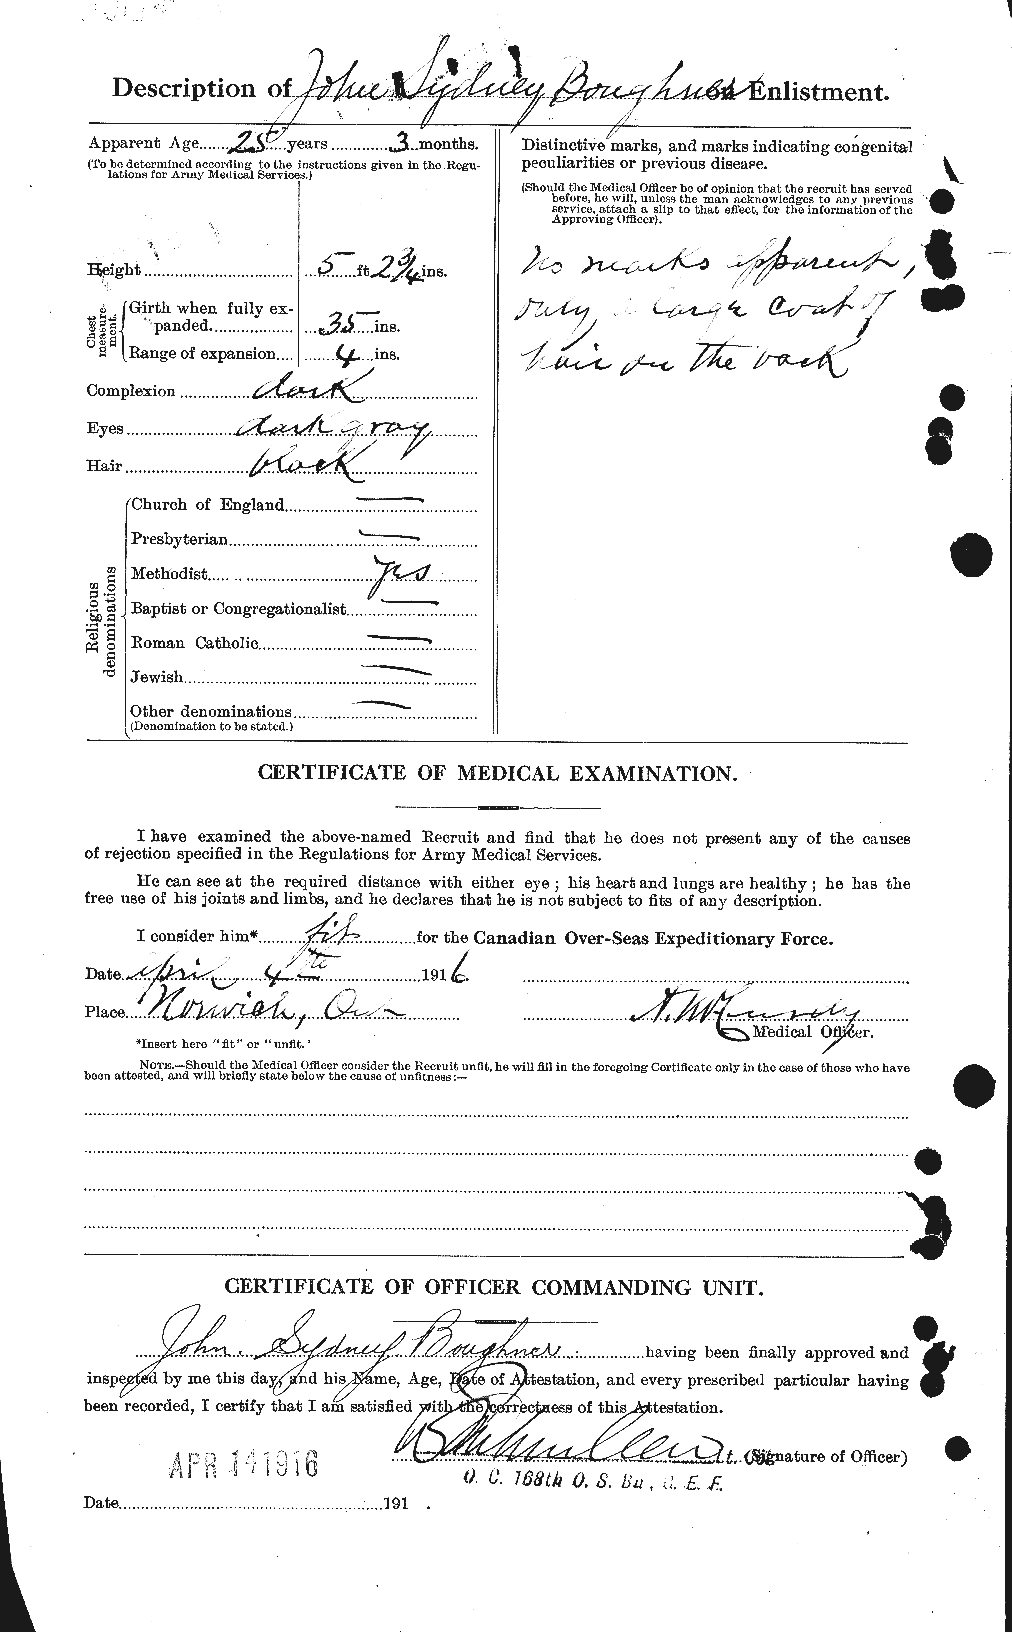 Description of John Sydney Boughner on Enlistment.
Apparent Age 25 years 3 months.
(To be determined according to the instructions given in the Regu-
lations for Army Medical Services.)
Height 5 ft 2 3/4 ins.
Chest measure-ment.
Girth when fully ex-
panded 35 ins.
Range of expansion 4 ins.
Complexion dark
Eyes dark gray
Hair black
Religious denominations
Church of England —
Presbyterian —
Methodist yes
Baptist or Congregationalist —
Roman Catholic —
Jewish —
Other denominations —
(Denomination to be stated.)
Distinctive marks, and marks indicating congenital
peculiarities or previous disease.
(Should the Medical Officer be of opinion that the recruit has served
before, he will, unless the man acknowledges to any previous
service, attach a slip to that effect, for the information of the
Approving Officer).
No marks apparent,
only a large coat of
hair on the back
CERTIFICATE OF MEDICAL EXAMINATION.
I have examined the above-named Recruit and find that he does not present any of the causes
of rejection specified in the Regulations for Army Medical Services.
He can see at the required distance with either eye; his heart and lungs are healthy; he has the
free use of his joints and limbs, and he declares that he is not subject to fits of any description.
I consider him* fit for the Canadian Over-Seas Expeditionary Force.
Date April 4th 1916.
Place Norwich, Ont
Medical Officer.
*Insert here "fit" or "unfit."
NOTE.—Should the Medical Officer consider the Recruit unfit, he will fill in the foregoing Certificate only in the case of those who have
been attested, and will briefly state below the cause of unfitness:—
CERTIFICATE OF OFFICER COMMANDING UNIT.
John Sydney Boughner having been finally approved and
inspected by me this day, and his Name, Age, Date of Attestation, and every prescribed particular having
been recorded, I certify that I am satisfied with the correctness of this Attestation.
Lt. Col. (Signature of Officer)
O. C. 168th O. S. Bn, C. E. F.
APR 14 1916
Date 191 .